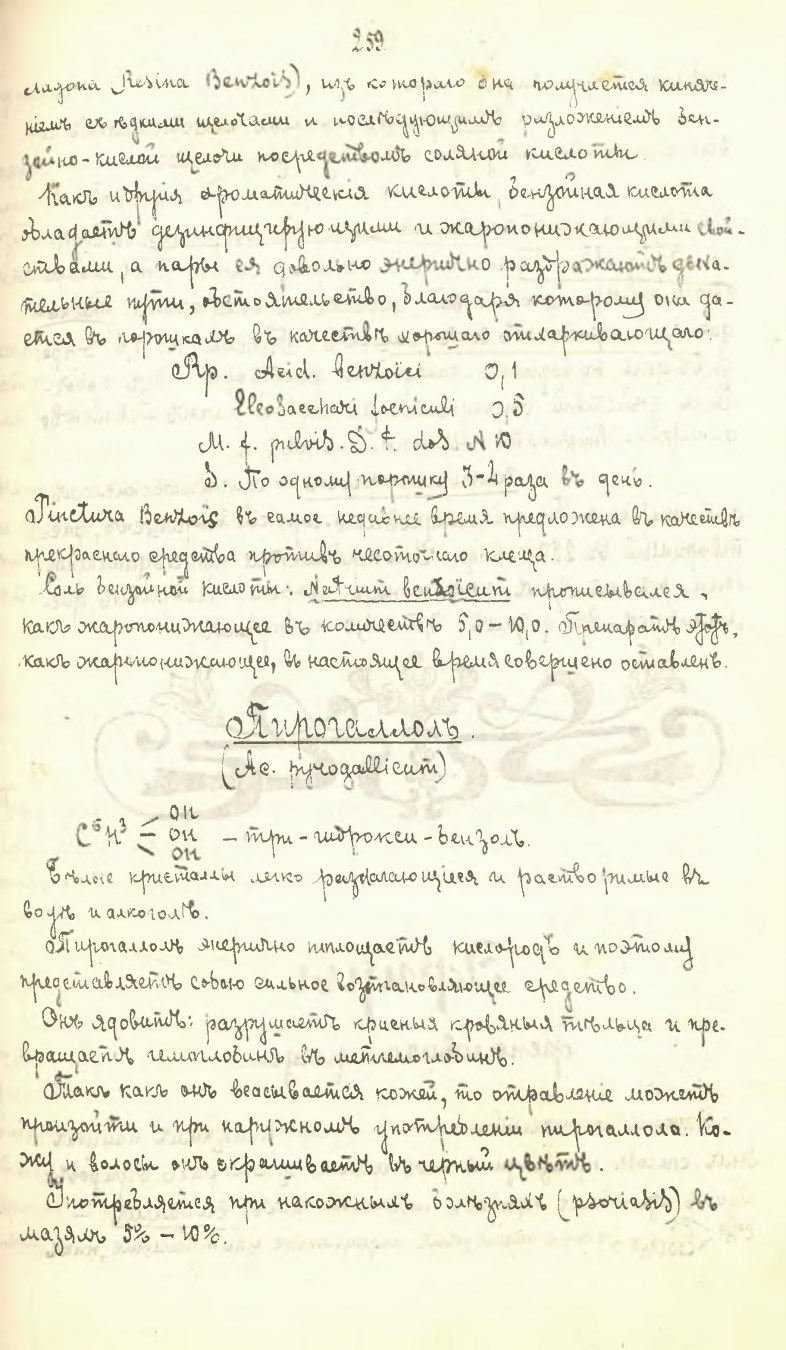 259
ладона Resina Benzoïs), изъ котораго она получается кипяче-
ніемъ съ ѣдкими щелочами и послѣдующимъ разложеніемъ бен-
зойно-кислой щелочи посредствомъ соляной кислоты.
Какъ и другія ароматическія кислоты, бензойная кислота
обладаетъ дезинфицирующими и жаропонижающими свой-
ствами, а пары ея довольно энергично раздражаютъ дыха-
тельные пути, обстоятельство, благодаря которому она да-
ется въ порошкахъ въ качествѣ хорошаго отхаркивающаго:
Rp. Acid. benzoïci 0,1
Eleosacchari foeniculi 0,5
M. f. pulvis. D. t. dos N 10
S. По одному порошку 3-4 раза въ день.
Tinctura Benzoïs въ самое недавнее время предложена въ качествѣ
прекраснаго средства противъ чесоточнаго клеща.
Соль бензойной кислоты: Natrum benzoïcum прописывался,
какъ жаропонижающее въ количествѣ 5,0-10,0. Препаратъ этотъ,
какъ жаропонижающее, въ настоящее время совершено оставленъ.
Пирогаллолъ.
(Ac. pyrogallicum)
OH
C⁶H³ OH - три-гидрокси-бензолъ.
OH
Бѣлые кристаллы легко разлагающіеся и растворимые въ
водѣ и алкоголѣ.
Пирогаллолъ энергично поглощаетъ кислородъ и поэтому
представляетъ собою сильное возстановляющее средство.
Онъ ядовитъ: разрушаетъ красныя кровяныя тѣльца и пре-
вращаетъ гемоглобинъ въ метгемоглобинъ.
Такъ какъ онъ всасывается кожей, то отравленіе можетъ
произойти и при наружномъ употребленіи пирогаллола. Ко-
жу и волосы онъ окрашиваетъ въ черный цвѣтъ.
Употребляется при накожныхъ болѣзняхъ (psoriasis) въ
мазяхъ 5% - 10%.